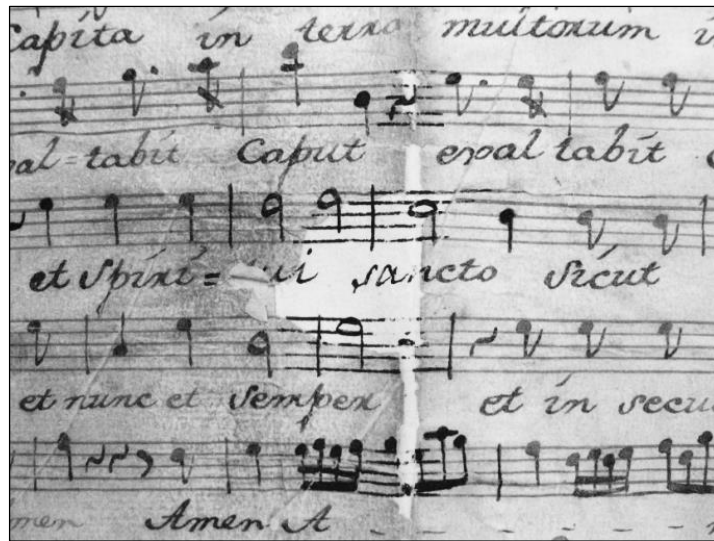 Capita in terra multorum i
al=tabit Caput exal tabit
et Spiri=tui sancto Sicut
et nunc et Semper et in secu
men Amen A - - - - -